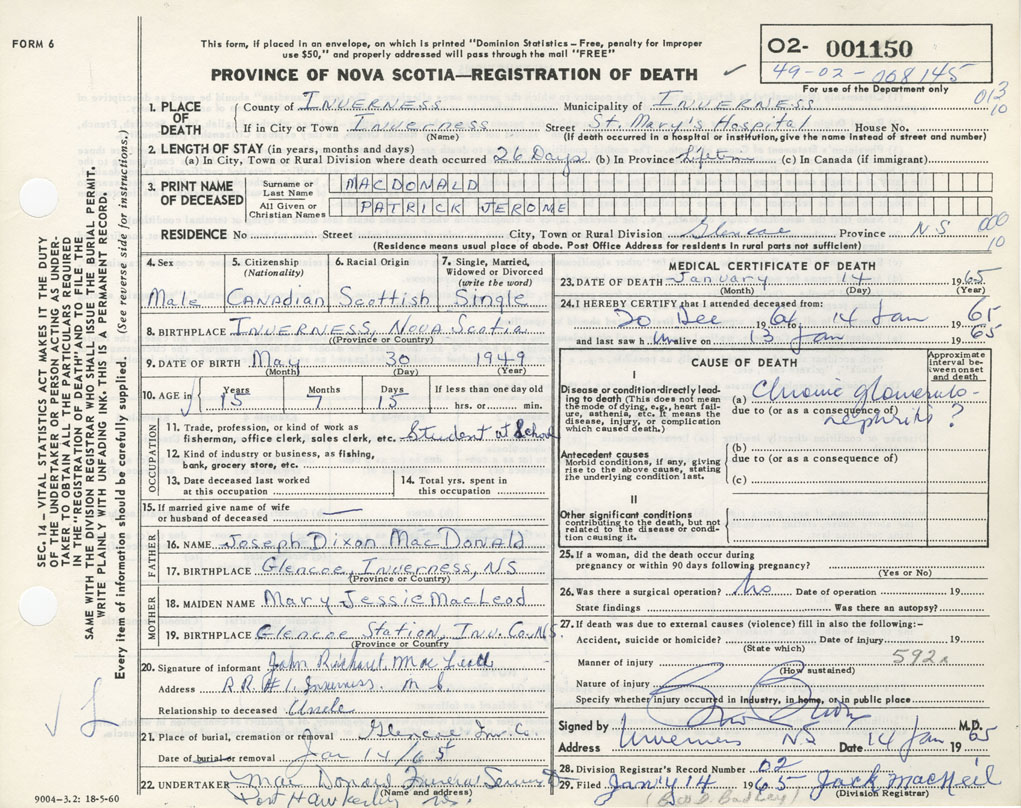 FORM 6
This form, if placed in an envelope, on which is printed "Dominion Statistics – Free, penalty for improper
use $50," and properly addressed will pass through the mail "FREE"
PROVINCE OF NOVA SCOTIA—REGISTRATION OF DEATH ✓
O2- 001150
49-02-008145
For use of the Department only
013
10
1. PLACE OF DEATH
County of INVERNESS Municipality of INVERNESS
If in City or Town Inverness Street St. Mary's Hospital House No.
(Name) (If death occurred in a hospital or institution, give the name instead of street and number)
2. LENGTH OF STAY (in years, months and days)
(a) In City, Town or Rural Division where death occurred 26 Days (b) In Province Lifetime (c) In Canada (if immigrant)
3. PRINT NAME OF DECEASED
Surname or Last Name MACDONALD
All Given or Christian Names PATRICK JEROME
RESIDENCE No Street City, Town or Rural Division Glencoe Province NS
000
10
(Residence means usual place of abode. Post Office Address for residents in rural parts not sufficient)
4. Sex Male
5. Citizenship (Nationality) CANAdian
6. Racial Origin Scottish
7. Single, Married, Widowed or Divorced (write the word) Single
8. BIRTHPLACE INVERNESS, NOVA Scotia
((Province or Country)
9. DATE OF BIRTH May 30 1949
(Month) (Day) (Year)
10. AGE in Years 15 Months 7 Days 15 If less than one day old hrs. or min.
OCCUPATION
11. Trade, profession, or kind of work as
fisherman, office clerk, sales clerk, etc. Student at School
12. Kind of industry or business, as fishing,
bank, grocery store, etc.
13. Date deceased last worked
at this occupation
14. Total yrs. spent in
this occupation
15. If married give name of wife
or husband of deceased —
FATHER
16. NAME Joseph Dixon MacDonald
17. BIRTHPLACE Glencoe, Inverness, NS
(Province or Country)
MOTHER
18. MAIDEN NAME Mary Jessie MacLeod
19. BIRTHPLACE Glencoe Station, Inv. Co. NS.
(Province or Country)
20. Signature of informant John Richard Mac
Address R.R. #1. Inverness.
Relationship to deceased Uncle
21. Place of burial, cremation or removal Glencoe Inv. Co.
Date of burial or removal Jan 14/65
22. UNDERTAKER MacDonald Funeral Service
(Name and address)
Port Hawkesbury NS.
MEDICAL CERTIFICATE OF DEATH
23. DATE OF DEATH January 14 1965
(Month) (Day) (Year)
24. I HEREBY CERTIFY that I attended deceased from:
30 Dec 1964 to 14 Jan 65
and last saw him alive on 13 Jan 65
CAUSE OF DEATH
Approximate interval between onset and death
I
Disease or condition directly leading to death (This does not mean the mode of dying, e.g., heart failure, asthenia, etc. It means the disease, injury, or complication which caused death.)
(a) Chronic glomerulo-
due to (or as a consequence of)
nephritis ?
Antecedent causes
Morbid conditions, if any, giving rise to the above cause, stating the underlying condition last.
(b)
due to (or as a consequence of)
(c)
II
Other significant conditions
contributing to the death, but not related to the disease or condition causing it.
25. If a woman, did the death occur during
pregnancy or within 90 days following pregnancy?
(Yes or No)
26. Was there a surgical operation? No Date of operation 19
State findings Was there an autopsy?
27. If death was due to external causes (violence) fill in also the following:-
Accident, suicide or homicide? Date of injury 19
(State which)
Manner of injury
(How sustained)
592x
Nature of injury
Specify whether injury occurred in industry, in home, or in public place
Signed by M.D.
Address Inverness NS Date 14 Jan 1965
28. Division Registrar's Record Number 02
29. Filed Jan'y 14 1965 Jack MacNeil
(Division Registrar)
SEC. 14 – VITAL STATISTICS ACT MAKES IT THE DUTY
OF THE UNDERTAKER OR PERSON ACTING AS UNDER-
TAKER TO OBTAIN ALL THE PARTICULARS REQUIRED
IN THE "REGISTRATION OF DEATH" AND TO FILE THE
SAME WITH THE DIVISION REGISTRAR WHO SHALL ISSUE THE BURIAL PERMIT.
WRITE PLAINLY WITH UNFADING INK. THIS IS A PERMANENT RECORD.
Every item of information should be carefully supplied. (See reverse side for instructions.)
9004-3.2: 18-5-60